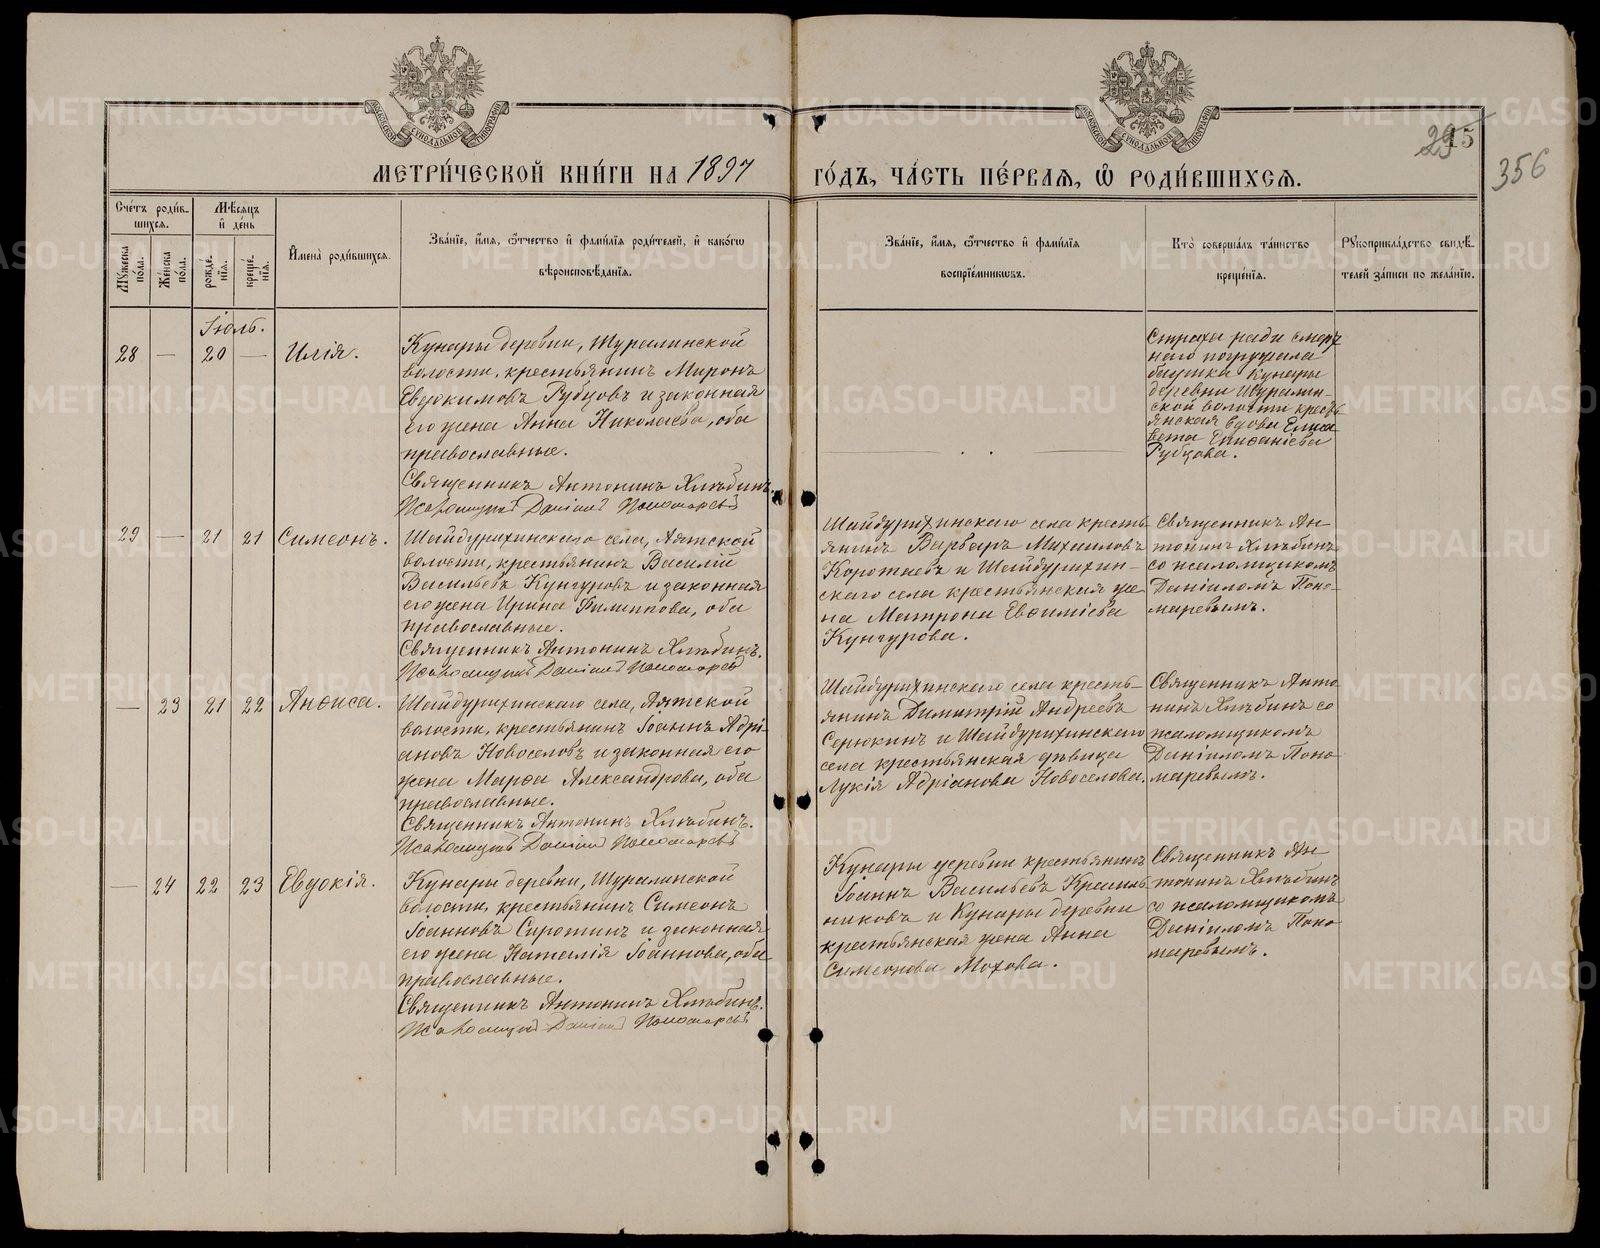 МОСКОВСКОЙ СѴНОДАЛЬНОЙ ТИПОГРАФІИ
МОСКОВСКОЙ СѴНОДАЛЬНОЙ ТИПОГРАФІИ
29 15
356
МЕТРИ́ЧЕСКОЙ КНИ́ГИ НА 1897
ГО́ДЪ, ЧА́СТЬ ПЕ́РВАѦ, Ѿ РОДИ́ВШИХСѦ.
Сче́тъ роди́в-
шихсѧ.
Мꙋжеска по́ла.
Же́нска по́ла.
Мѣ́сѧцъ
и҆ де́нь
рожде́-
нїѧ.
креще́-
нїѧ.
И҆мена̀ роди́вшихсѧ.
Зва́нїе, и҆́мѧ, ѻ҆́тчество и҆ фами́лїѧ роди́телей, и҆ како́гѡ
вѣроисповѣ́данїѧ.
Зва́нїе, и҆́мѧ, ѻ҆́тчество и҆ фами́лїѧ
воспрїе́мникѡвъ.
Кто̀ соверша́лъ та́инство
креще́нїѧ.
Рꙋкоприкла́дство свидѣ́-
телей за́писи по жела́нїю.
Іюль.
28 — 20 — Илія.
Кунары деревни, Шуралинской
волости, крестьянинъ Миронъ
Евдокимовъ Рубцовъ и законная
его жена Анна Николаева, оба
православные.
Священникъ Антонинъ Хлѣбинъ.
Псаломщикъ Даніилъ Пономаревъ
Страха ради смерт
наго погружала
бабушка Кунары
деревни Шуралин-
ской волости кресть
янская вдова Елиса
вета Епифаніева
Рубцова.
29 — 21 21 Симеонъ.
Шайдурихинскаго села, Аятской
волости, крестьянинъ Василій
Васильевъ Кунгуровъ и законная
его жена Ирина Филиппова, оба
православные.
Священникъ Антонинъ Хлѣбинъ.
Псаломщикъ Даніилъ Пономаревъ
Шайдурихинскаго села кресть
янинъ Варваръ Михаиловъ
Коротаевъ и Шайдурихин-
скаго села крестьянская же
на Матрона Евѳиміева
Кунгурова.
Священникъ Ан-
тонинъ Хлѣбинъ
со псаломщикомъ
Даніиломъ Поно-
маревымъ.
— 23 21 22 Анѳиса.
Шайдурихинскаго села, Аятской
волости, крестьянинъ Іоаннъ Адрі-
ановъ Новоселовъ и законная его
жена Марѳа Александрова, оба
православные.
Священникъ Антонинъ Хлѣбинъ.
Псаломщикъ Даніилъ Пономаревъ
Шайдурихинскаго села кресть-
янинъ Димитрій Андреевъ
Серюкинъ и Шайдурихинскаго
села крестьянская дѣвица
Лукія Адріанова Новоселова.
Священникъ Анто
нинъ Хлѣбинъ со
псаломщикомъ
Даніиломъ Поно-
маревымъ.
— 24 22 23 Евдокія.
Кунары деревни, Шуралинской
волости, крестьянинъ Симеонъ
Іоанновъ Сиротинъ и законная
его жена Наталія Іоаннова, оба
православные.
Священникъ Антонинъ Хлѣбинъ.
Псаломщикъ Даніилъ Пономаревъ
Кунары деревни крестьянинъ
Іоаннъ Васильевъ Красиль
никовъ и Кунары деревни
крестьянская жена Анна
Симеонова Мохова.
Священникъ Ан
тонинъ Хлѣбинъ
со псаломщикомъ
Даніиломъ Поно
маревымъ.
METRIKI.GASO-URAL.RU